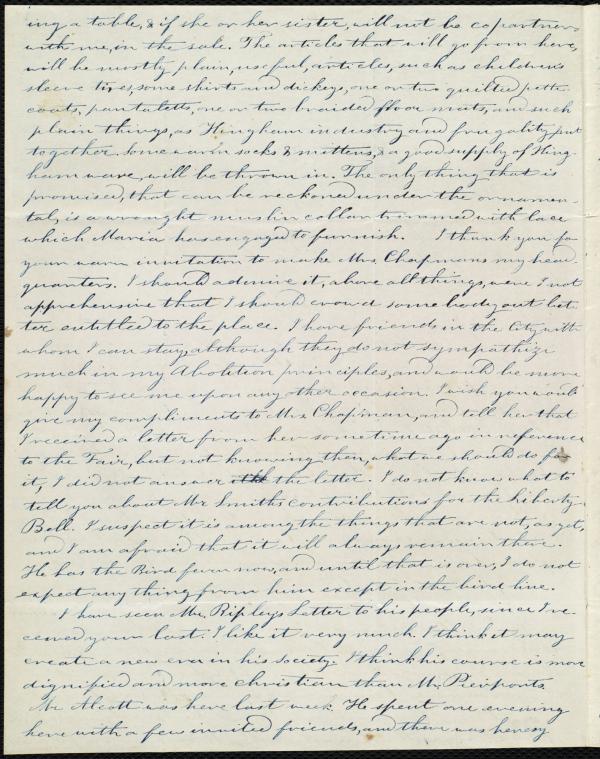 ing a table, & if she or her sister, will not be copartners
with me, in the sale. The articles that will go from here,
will be mostly plain, useful, articles, such as children's
sleeve tires, some shirts and dickeys, one or two quilted petti-
coats, pantaletts, one or two braided floor mats, and such
plain things, as Hingham industry and frugality put
together. Some warm socks & mittens, & a good supply of Hing-
ham ware, will be thrown in. The only thing that is
promised, that can be reckoned under the ornamen-
tal, is a wrought muslin collar trimmed with lace
which Maria has engaged to furnish. I thank you for
your warm invitation to make Mrs Chapmans my head
quarters. I should admire it, above all things, were I not
apprehensive that I should crowd some body out bet-
ter entitled to the place. I have friends in the City with
whom I can stay, although they do not sympathize
much in my Abolition principles, and would be more
happy to see me upon any other occasion. I wish you would
give my compliments to Mrs Chapman, and tell her that
I received a letter from her sometime ago in reference
to the Fair, but not knowing then, what we should do for
it, I did not answer the letter. I do not know what to
tell you about Mr Smiths contributions for the Liberty
Bell. I suspect it is among the things that are not, as yet,
and I am afraid that it will always remain there.
He has the Bird fever now, and until that is over, I do not
expect any thing from him except in the bird line.
I have seen Mr. Ripleys Letter to his people, since I re-
ceived your last. I like it very much. I think it may
create a new era in his society. I think his course is more
dignified and more christian than Mr Pierponts.
Mr Alcott was here last week. He spent one evening
here with a few invited friends, and there was heresy